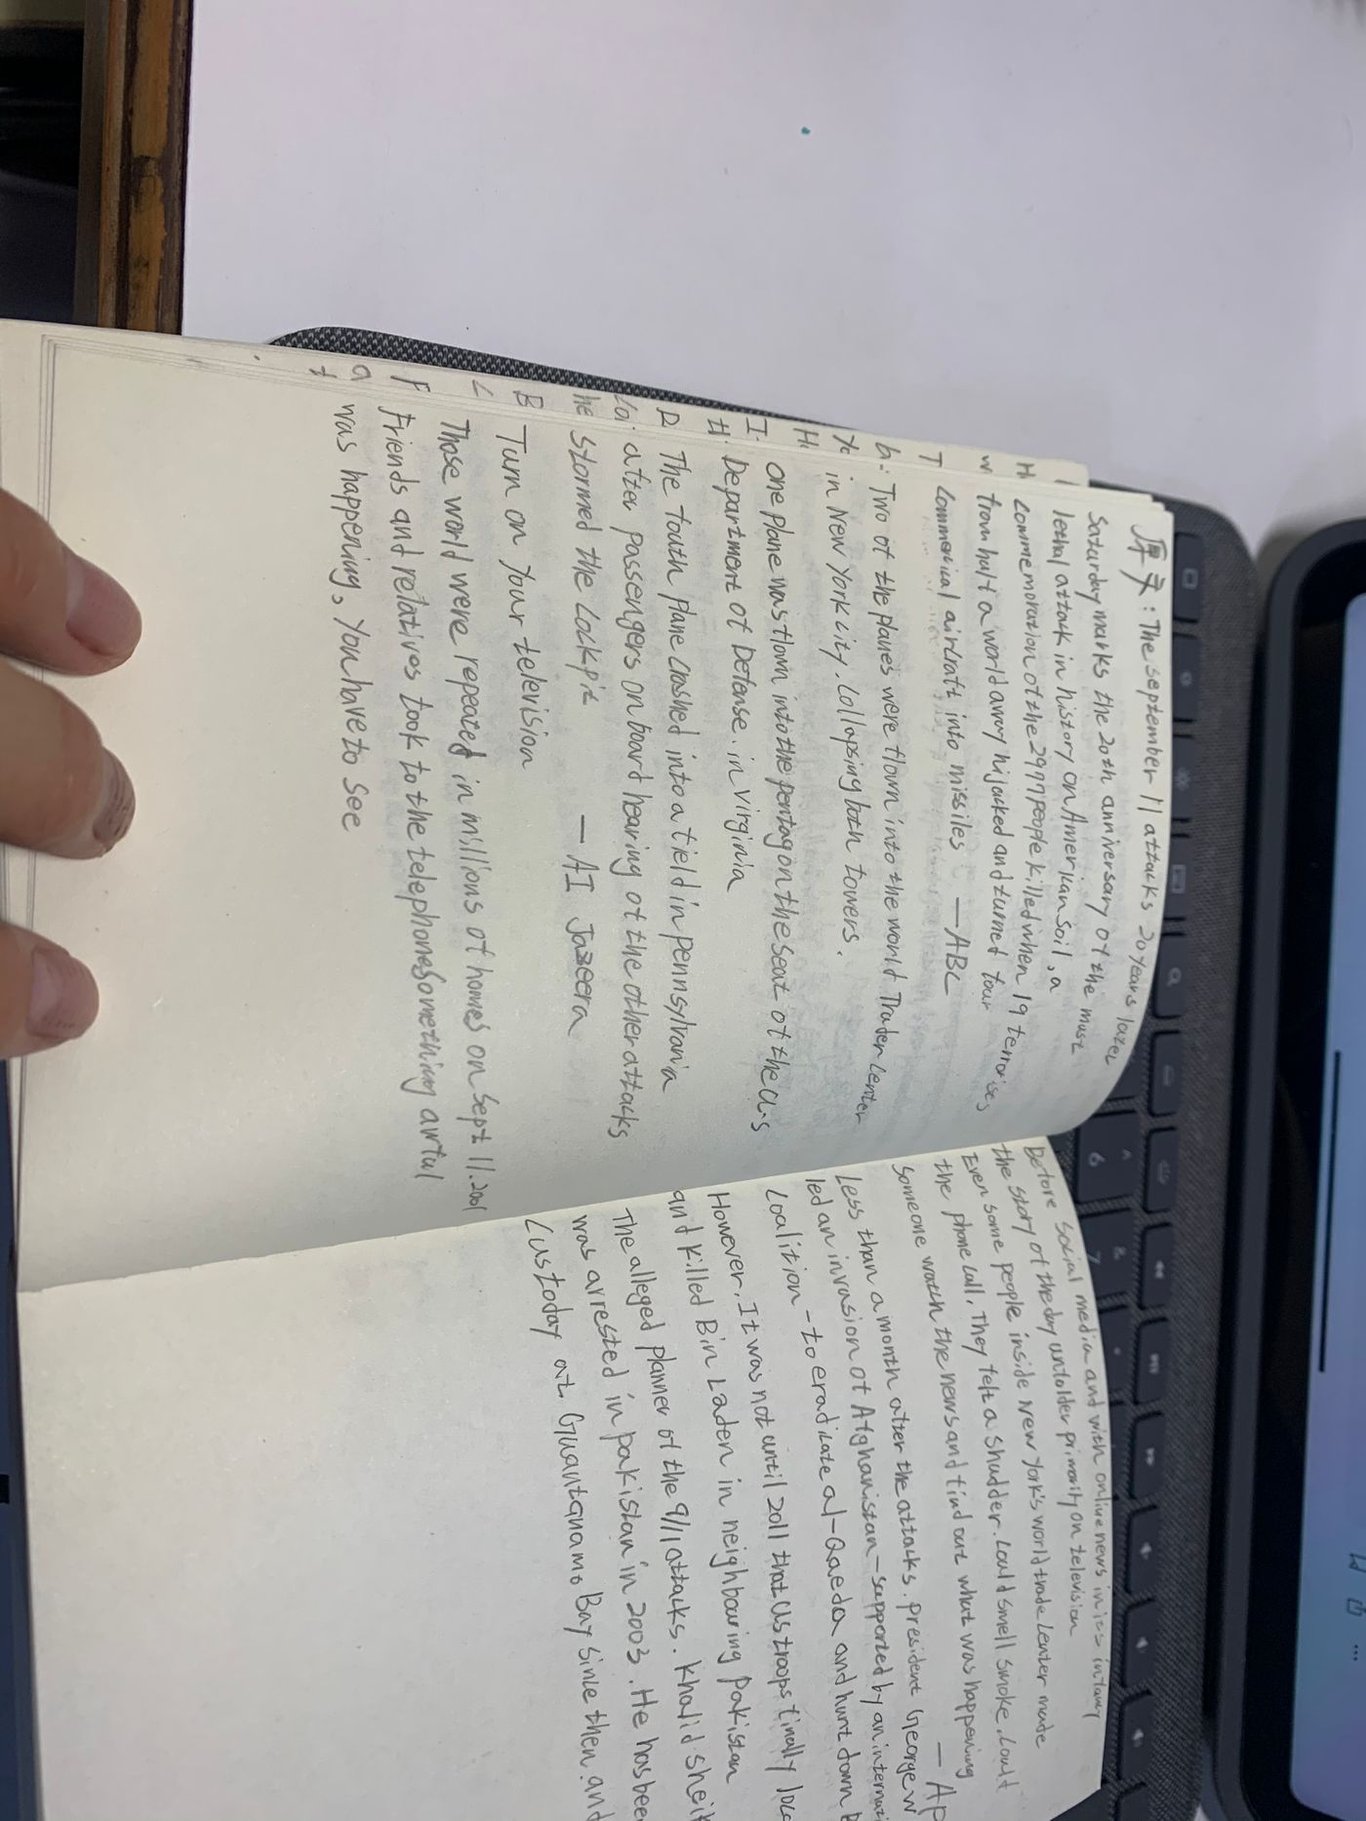 原文:The september 11 attacks 20 years later
Saturday marks the 20th anniversary of the must
lethal attack in history on American soil, a
Commemoration of the 2977 people killed when 19 terrorises
from half a world away hijacked and turned four
Commerical aircraft into missiles —ABC
Two of the planes were flown into the world Trader Center
in New York city. Collapsing both towers.
One plane was flown into the pentagon the seat of the U.S
Department of Defense. in virginia
The fouth plane crashed into a field in pennsylvania
after passengers on board hearing of the other attacks
stormed the Cockpit —AI Jazeera
Turn on your television
Those world were repeated in millions of homes on Sept 11.2001
Friends and relatives took to the telephone Something awful
was happening, You have to see
Before social media and with online news in its infancy
the story of the day unfolder primarily on television
Even some people inside New York's world trade Center made
the phone call, They felt a shudder. Could smell smoke. Could
someone watch the news and find out what was happening
—AP
Less than a month after the attacks. president George W
led an invasion of Afghanistan-supported by an internati
Coalition-to eradicate al-Qaeda and hunt down B
However, It was not until 2011 that US troops finally loca
and killed Bin Laden in neighbouring Pakistan
The alleged planner of the 9/11 attacks. Khalid sheik
was arrested in pakistan in 2003. He has bee
Custoday at Guantanamo Bay since then. and